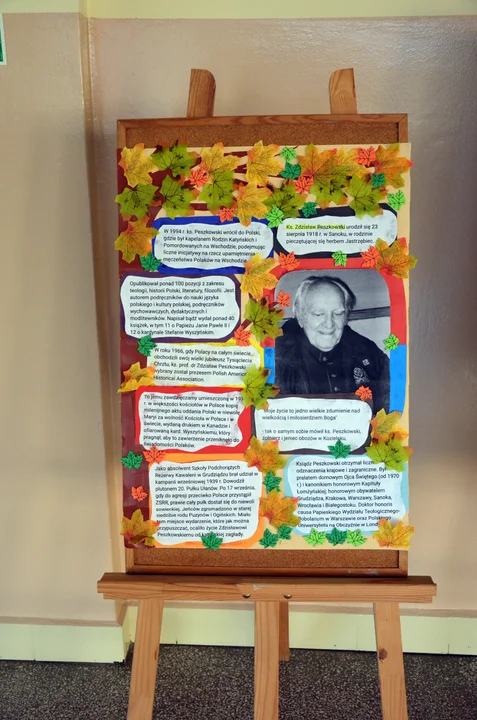 W 1994 r. ks. Peszkowski wrócił do Polski,
gdzie był Kapelanem Rodzin Katyńskich i
Pomordowanych na Wschodzie, podejmując
liczne inicjatywy na rzecz upamiętnienia
męczeństwa Polaków na Wschodzie.
Ks. Zdzisław Peszkowski urodził się 23
sierpnia 1918 r. w Sanoku, w rodzinie
pieczętującej się herbem Jastrzębiec.
Opublikował ponad 100 pozycji z zakresu
teologii, historii Polski, literatury, filozofii. Jest
autorem podręczników do nauki języka
polskiego i kultury polskiej, podręczników
wychowawczych, dydaktycznych i
modlitewników. Napisał bądź wydał ponad 40
książek, w tym 11 o Papieżu Janie Pawle II i
12 o kardynale Stefanie Wyszyńskim.
W roku 1966, gdy Polacy na całym świecie
obchodzili swój wielki jubileusz Tysiąclecia
Chrztu, ks. prof. dr Zdzisław Peszkowski
wybrany został prezesem Polish American
Historical Association.
To jemu zawdzięczamy umieszczoną w
r. w większości kościołów w Polsce kopię
milenijnego aktu oddania Polski w niewolę
Maryi za wolność Kościoła w Polsce i w
świecie, wydaną drukiem w Kanadzie i
ofiarowaną kard. Wyszyńskiemu, który
pragnął, aby to zawierzenie przeniknęło do
świadomości Polaków.
"Moje życie to jedno wielkie zdumienie nad
wielkością i miłosierdziem Boga"
- tak o samym sobie mówił ks. Peszkowski,
żołnierz i jeniec obozów w Kozielsku.
Jako absolwent Szkoły Podchorążych
Rezerwy Kawalerii w Grudziądzu brał udział w
kampanii wrześniowej 1939 r. Dowodził
plutonem 20. Pułku Ułanów. Po 17 września,
gdy do agresji przeciwko Polsce przystąpił
ZSRR, prawie cały pułk dostał się do niewoli
sowieckiej. Jeńców zgromadzono w starej
siedzibie rodu Puzynów i Ogińskich. Miało
tam miejsce wydarzenie, które jak można
przypuszczać, ocaliło życie Zdzisławowi
Peszkowskiemu od katyńskiej zagłady.
Ksiądz Peszkowski otrzymał liczne
odznaczenia krajowe i zagraniczne. Był
prałatem domowym Ojca Świętego (od 1970
r.) i kanonikiem honorowym Kapituły
Łomżyńskiej, honorowym obywatelem
Grudziądza, Krakowa, Warszawy, Sanoka,
Wrocławia i Białegostoku. Doktor honoris
causa Papieskiego Wydziału Teologicznego
Bobolanum w Warszawie oraz Polskiego
Uniwersytetu na Obczyźnie w Londynie.